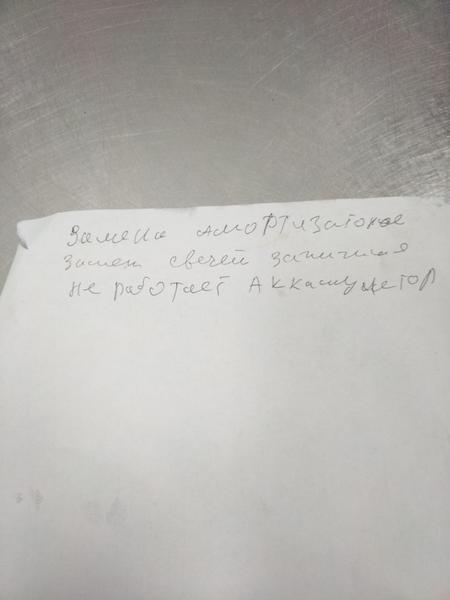 Замена амортизаторов
Замена свечей зажигания
Не работает Аккамулятор